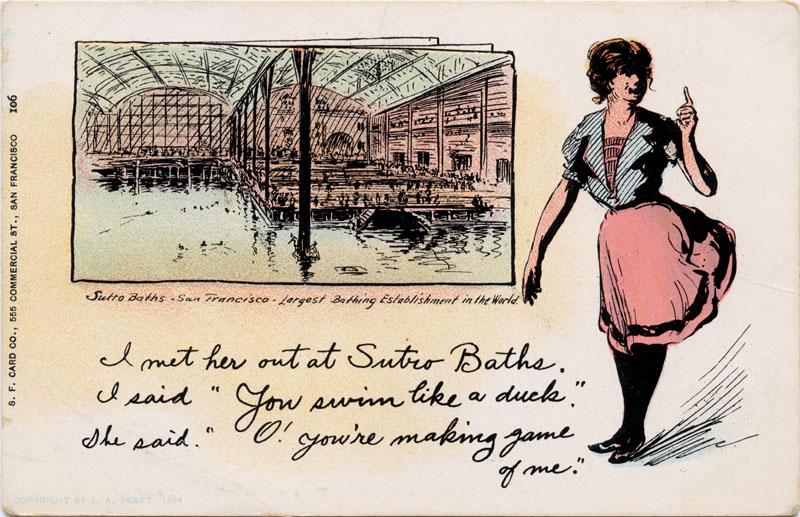 Sutro Baths - San Francisco - Largest Bathing Establishment in the World.
I met her out at Sutro Baths.
I said " You swim like a duck."
She said." O! you're making game
of me."
S. F. CARD CO., 555 COMMERCIAL ST., SAN FRANCISCO 106
COPYRIGHT BY S. A. PRATT, 1904